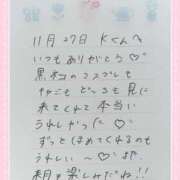 11月27日 Kくんへ
いつもありがとう♡
黒ネコのコスプレして
やさこもどーるも見に
来てくれて本当に
うれしかった♡
ずっとほめてくれるのも
うれしい〜♡また
来月楽しみだね!!